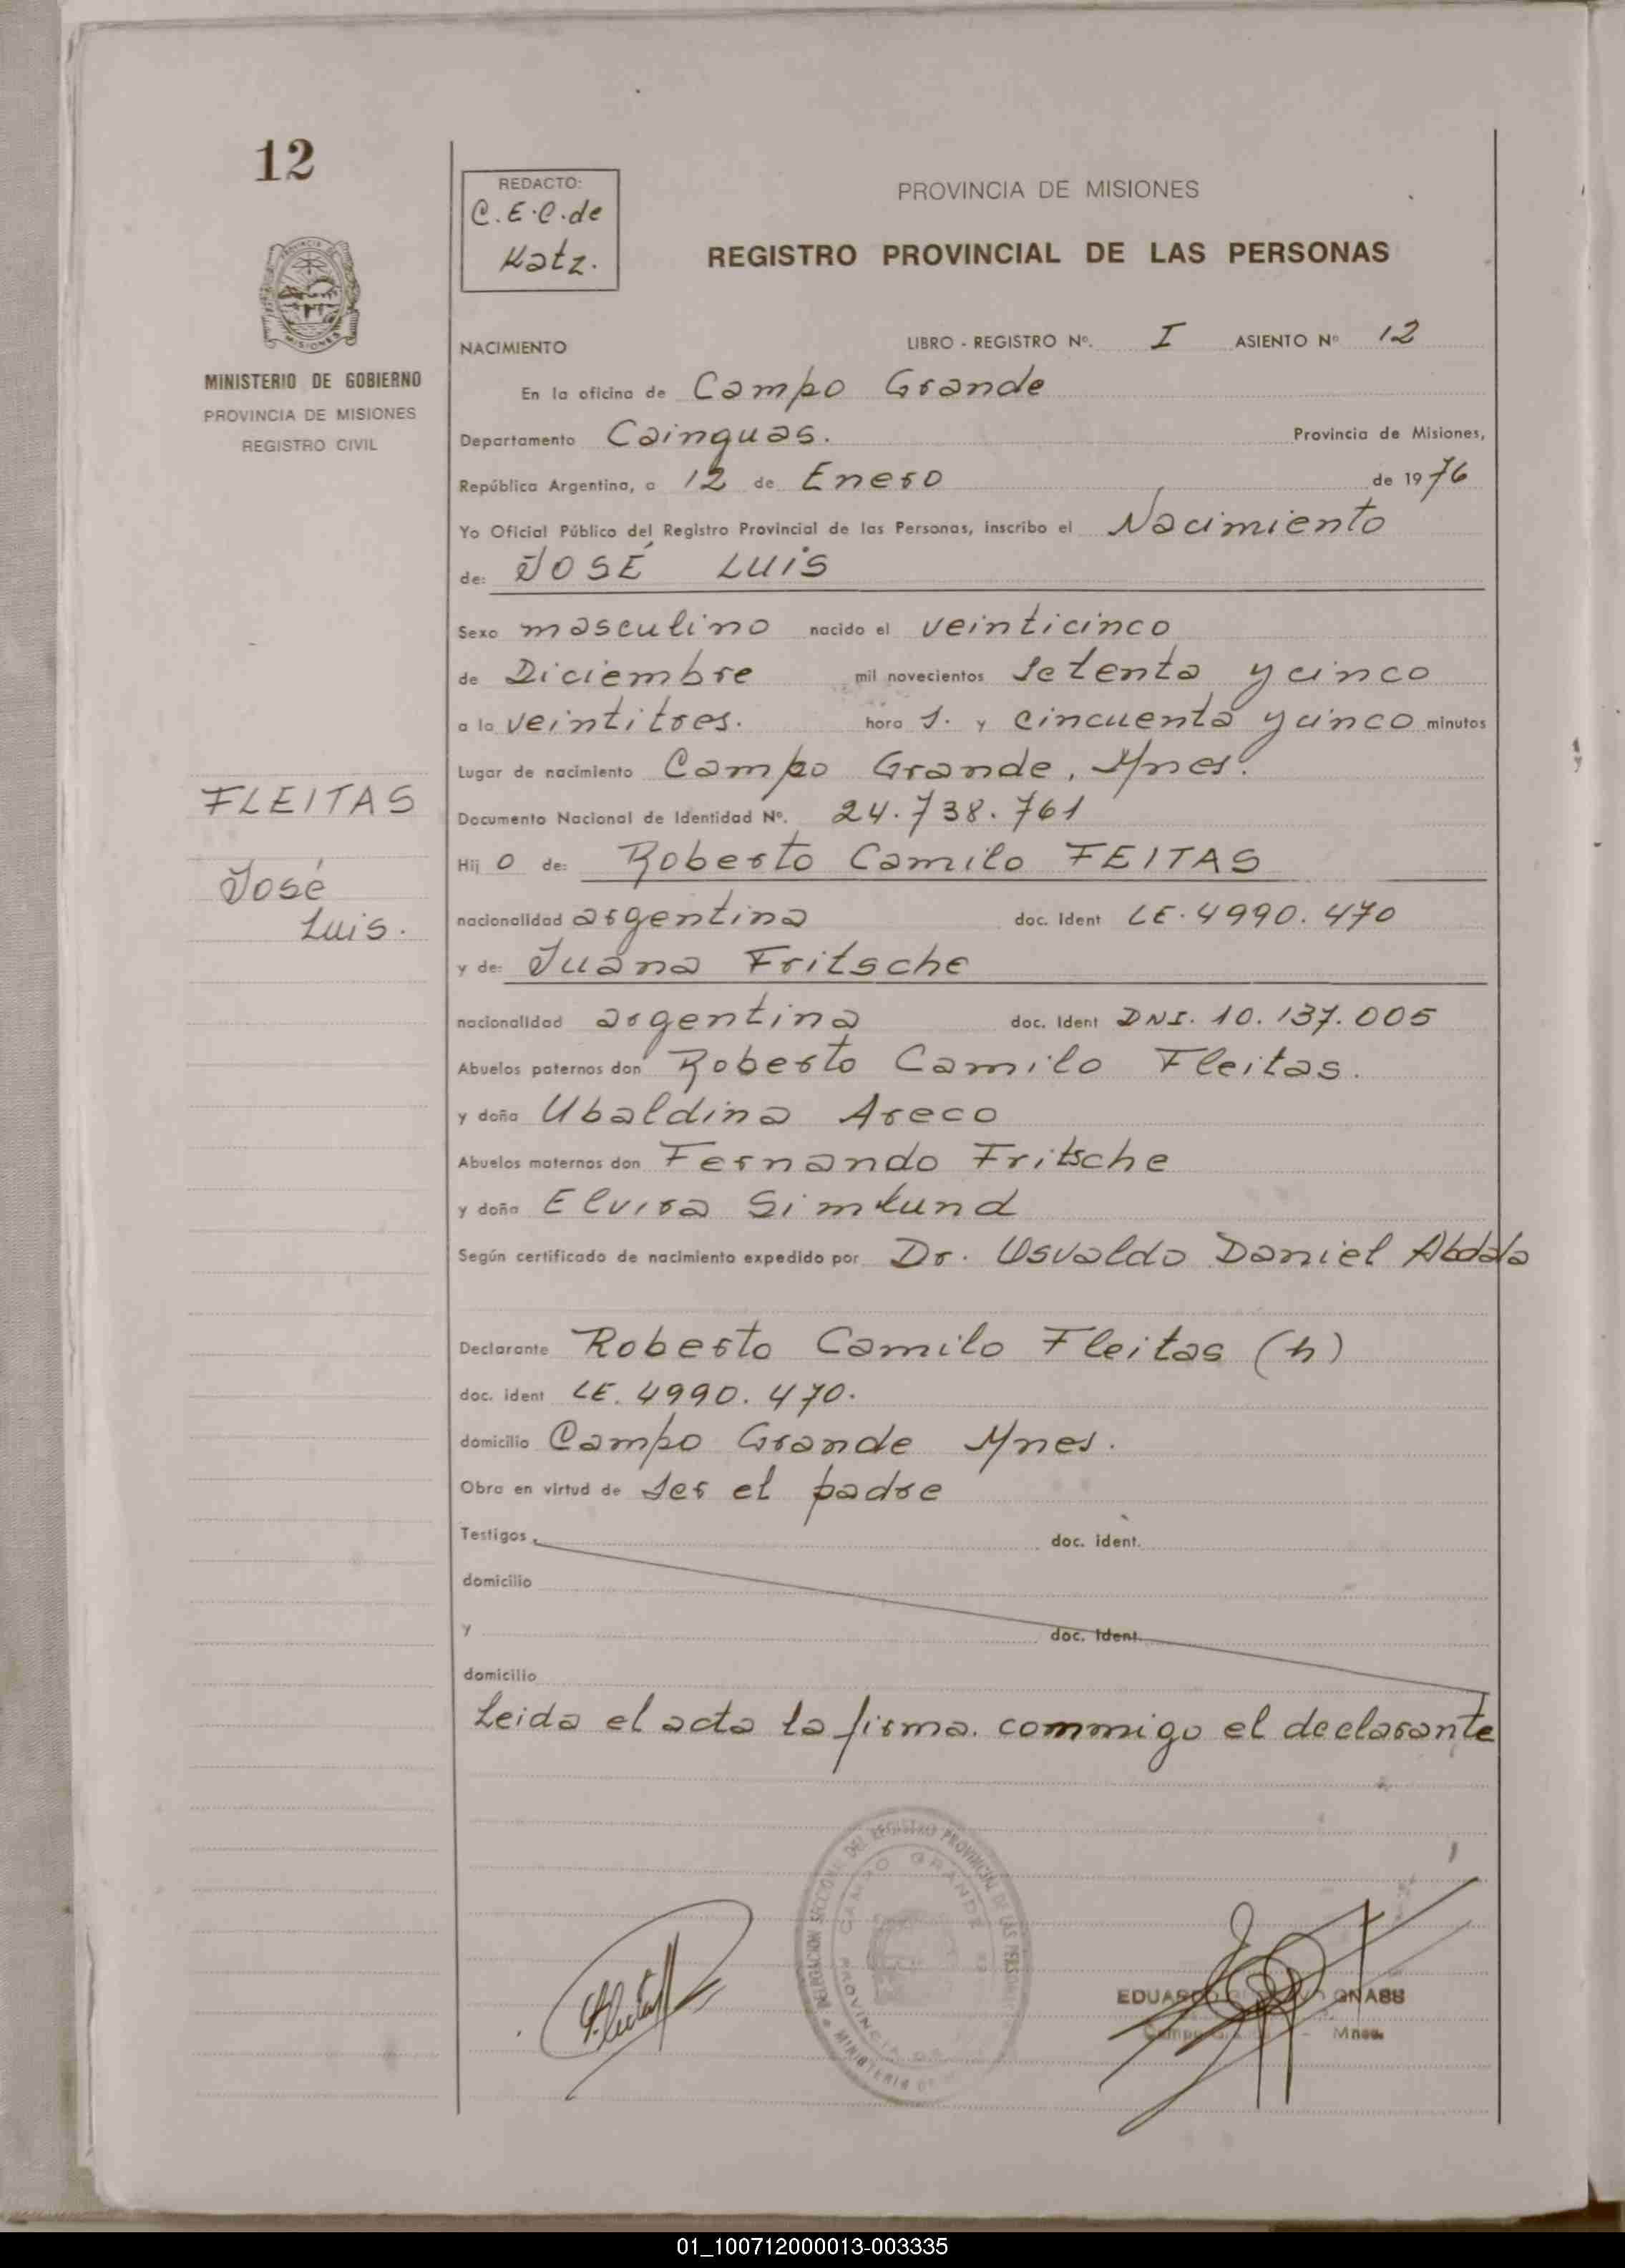 12
REDACTO:
C.E.C.de
Katz.
PROVINCIA DE MISIONES
REGISTRO PROVINCIAL DE LAS PERSONAS
MINISTERIO DE GOBIERNO
PROVINCIA DE MISIONES
REGISTRO CIVIL
NACIMIENTO LIBRO - REGISTRO Nº. I ASIENTO Nº 12
En la oficina de Campo Grande
Departamento Cainguas. Provincia de Misiones,
República Argentina, a 12 de Enero de 1976
Yo Oficial Público del Registro Provincial de las Personas, inscribo el Nacimiento
de: JOSÉ LUIS
Sexo masculino nacido el veinticinco
de Diciembre mil novecientos setenta y cinco
a la veintitres. hora s. y cincuenta y cinco minutos
Lugar de nacimiento Campo Grande, Mnes.
FLEITAS
José
Luis.
Documento Nacional de Identidad Nº. 24.738.761
Hij o de: Roberto Camilo FEITAS
nacionalidad argentina doc. Ident LE. 4990.470
y de: Juana Fritsche
nacionalidad argentina doc. Ident DNI. 10.137.005
Abuelos paternos don Roberto Camilo Fleitas.
y doña Ubaldina Areco
Abuelos maternos don Fernando Fritsche
y doña Elvira
Según certificado de nacimiento expedido por Dr. Osvaldo Daniel Abdala
Declarante Roberto Camilo Fleitas (h)
doc. ident LE. 4990.470.
domicilio Campo Grande Mnes.
Obra en virtud de ser el padre
Testigos doc. ident.
domicilio
y doc. Ident.
domicilio
Leida el acta la firma. commigo el declarante
DELEGACION SECCIONAL DEL REGISTRO PROVINCIAL DE LAS PERSONAS
CAMPO GRANDE
PROVINCIA DE
MINISTERIO DE
Fleitas
EDUARDO GNASS
Campo Mnes.
01_100712000013-003335